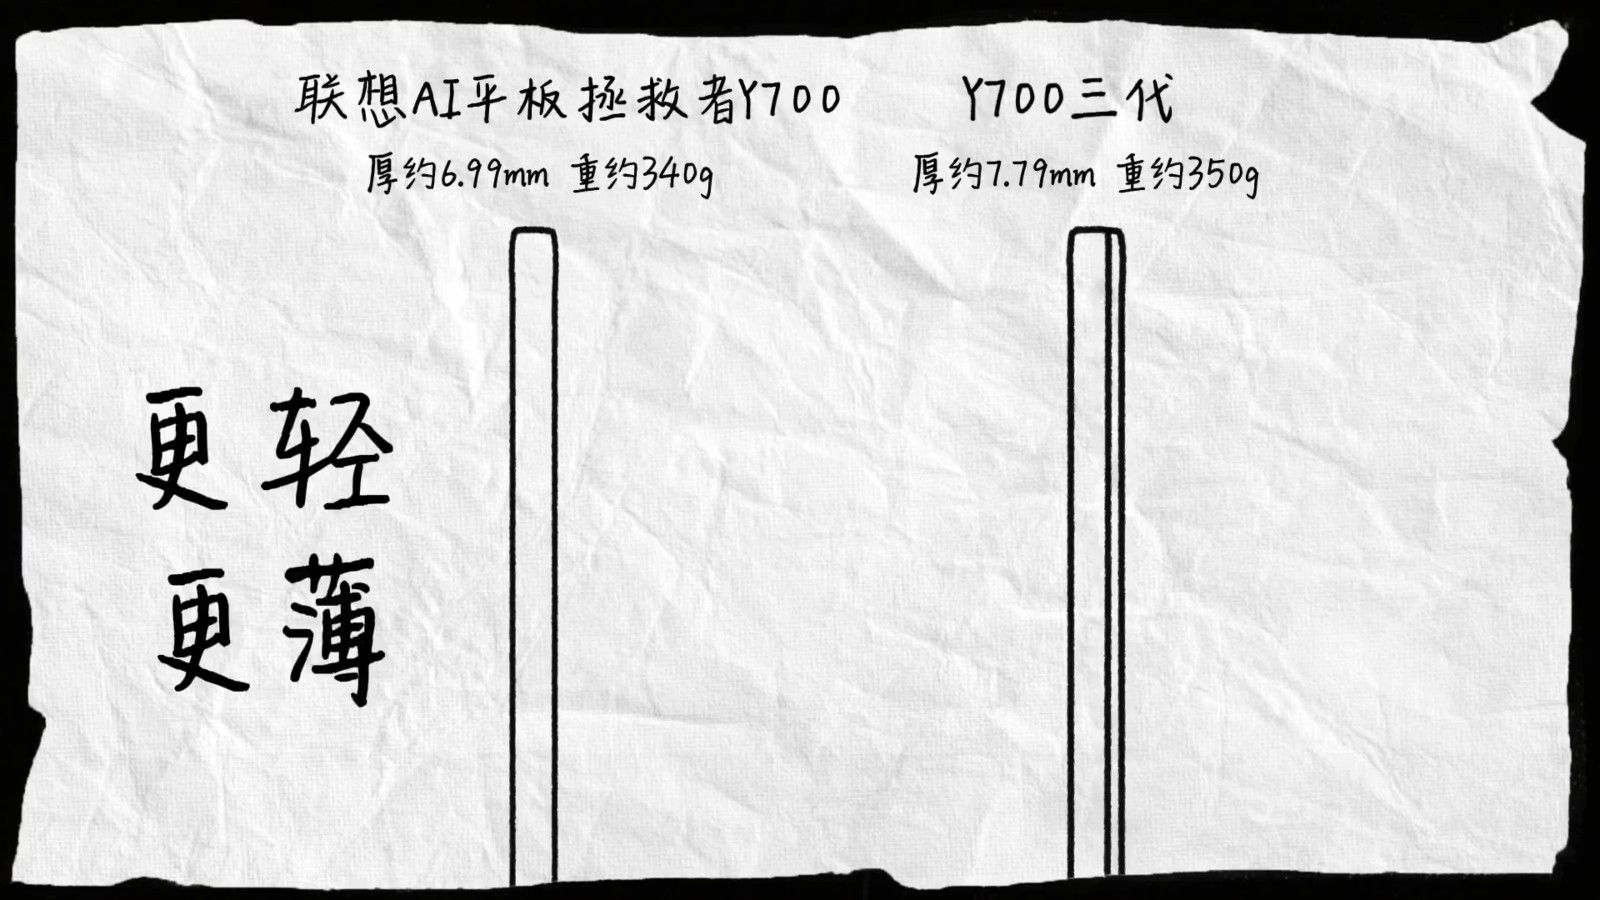 联想AI平板拯救者Y700
厚约6.99mm 重约340g
Y700三代
厚约7.79mm 重约350g
更轻
更薄